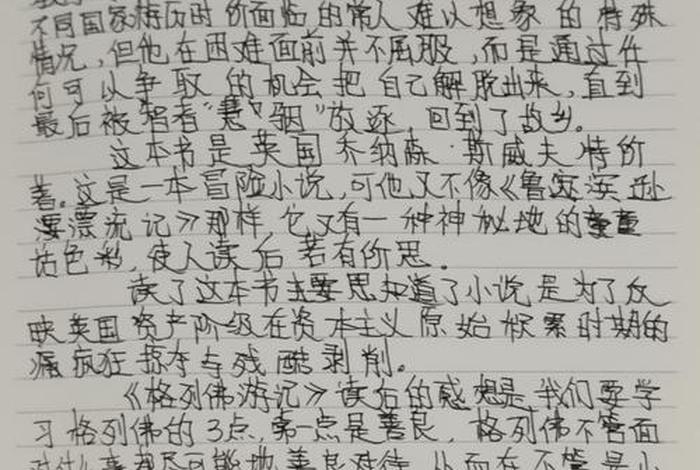 不同国家情历时价面临的常人难以想象的特殊
情况,但他在困难面前并不屈服,而是通过任
何可以争取的机会把自己解脱出来,直到
最后被智者“慧骃”放逐,回到了故乡。
这本书是英国乔纳森·斯威夫特价
著。这是一本冒险小说,可他又不像《鲁滨逊
漂流记》那样,它又有一种神秘地的童
话色彩,使人读后若有所思。
读了这本书主要思知道了小说是为了反
映英国资产阶级在资本主义原始积累时期的
疯狂掠夺与残酷剥削。
《格列佛游记》读后的感想是,我们要学
习格列佛的3点,第一点是善良,格列佛不管面